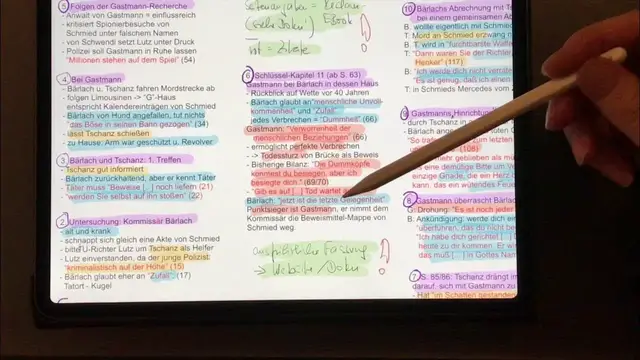 5 Folgen der Gastmann-Recherche
- Anwalt von Gastmann = einflussreich
- kritisiert Spionierbesuche von
Schmied unter falschem Namen
- von Schwendi setzt Lutz unter Druck
- Polizei soll Gastmann in Ruhe lassen
"Millionen stehen auf dem Spiel" (54)
4 Bei Gastmann
- Bärlach u. Tschanz fahren Mordstrecke ab
- folgen Limousinen -> "G"-Haus
entspricht Kalendereintragen von Schmied
- Bärlach von Hund angefallen, tut nichts
"das Böse in seinen Bann gezogen" (34)
- lässt Tschanz schießen
- zu Hause: Arm war geschützt u. Revolver
3 Bärlach und Tschanz: 1. Treffen
- Tschanz gut informiert
- Bärlach zurückhaltend, aber er kennt Täter
- Täter muss "Beweise [...] noch liefern (21)
- "werden Sie selbst auf ihn stoßen" (22)
2 Untersuchung: Kommissär Bärlach
- alt und krank
- schnappt sich gleich eine Akte von Schmied
- bittet U-Richter Lutz um Tschanz als Helfer
- Lutz einverstanden, da der junge Polizist
"kriminalistisch auf der Höhe" (15)
- Bärlach glaubt eher an "Zufall" (17)
Tatort - Kugel
= Reclam
EBook
ist = Zitate
6 Schlüssel-Kapitel 11 (ab S. 63)
Gastmann bei Bärlach in dessen Haus
- Rückblick auf Wette vor 40 Jahren
- Bärlach glaubt an "menschliche Unvoll-
kommenheit" und "Zufall"
jedes Verbrechen = "Dummheit" (66)
Gastmann: "Verworrenheit der
menschlichen Beziehungen" (66)
- ermöglicht perfekte Verbrechen
-> Todessturz von Brücke als Beweis
- Bisherige Bilanz: "Die Dummköpfe
konntest du besiegen, aber ich
besiegte dich." (69/70)
- "Gib es auf [...] Tod wartet
Bärlach: "jetzt ist die letzte Gelegenheit"
Punktsieger ist Gastmann, er nimmt dem
Kommissär die Beweismittel-Mappe von
Schmied weg.
ausführliche Fassung
-> Website/Doku
10 Bärlachs Abrechnung mit
bei einem gemeinsamen
B. wollte eigentlich mit
T: Mord an Schmied erzwang
B. T. wird in "furchtbarste
T: "Dann waren Sie der Richter
Henker" (117)
B: "Ich werde dich nicht
"Es ist genug, daß ich einen
T. in Schmieds Mercedes vom
9 Gastmanns "Hinrichtung"
- durch Tschanz in
- Bärlach ange
"So tra
(108)
Gnade, das ein wütendes
8 Gastmann überrascht Bärlach
- G: Drohung: "Es ist noch
B: Ankündigung: werde dich
"überführen, das du nicht
Ich habe dich gerichtet
heute zu dir kommen. Er
das muß [...] in Gottes
7 S. 85/86: Tschanz drängt
darauf, sich mit Gastmann zu
- Hat "im Schatten